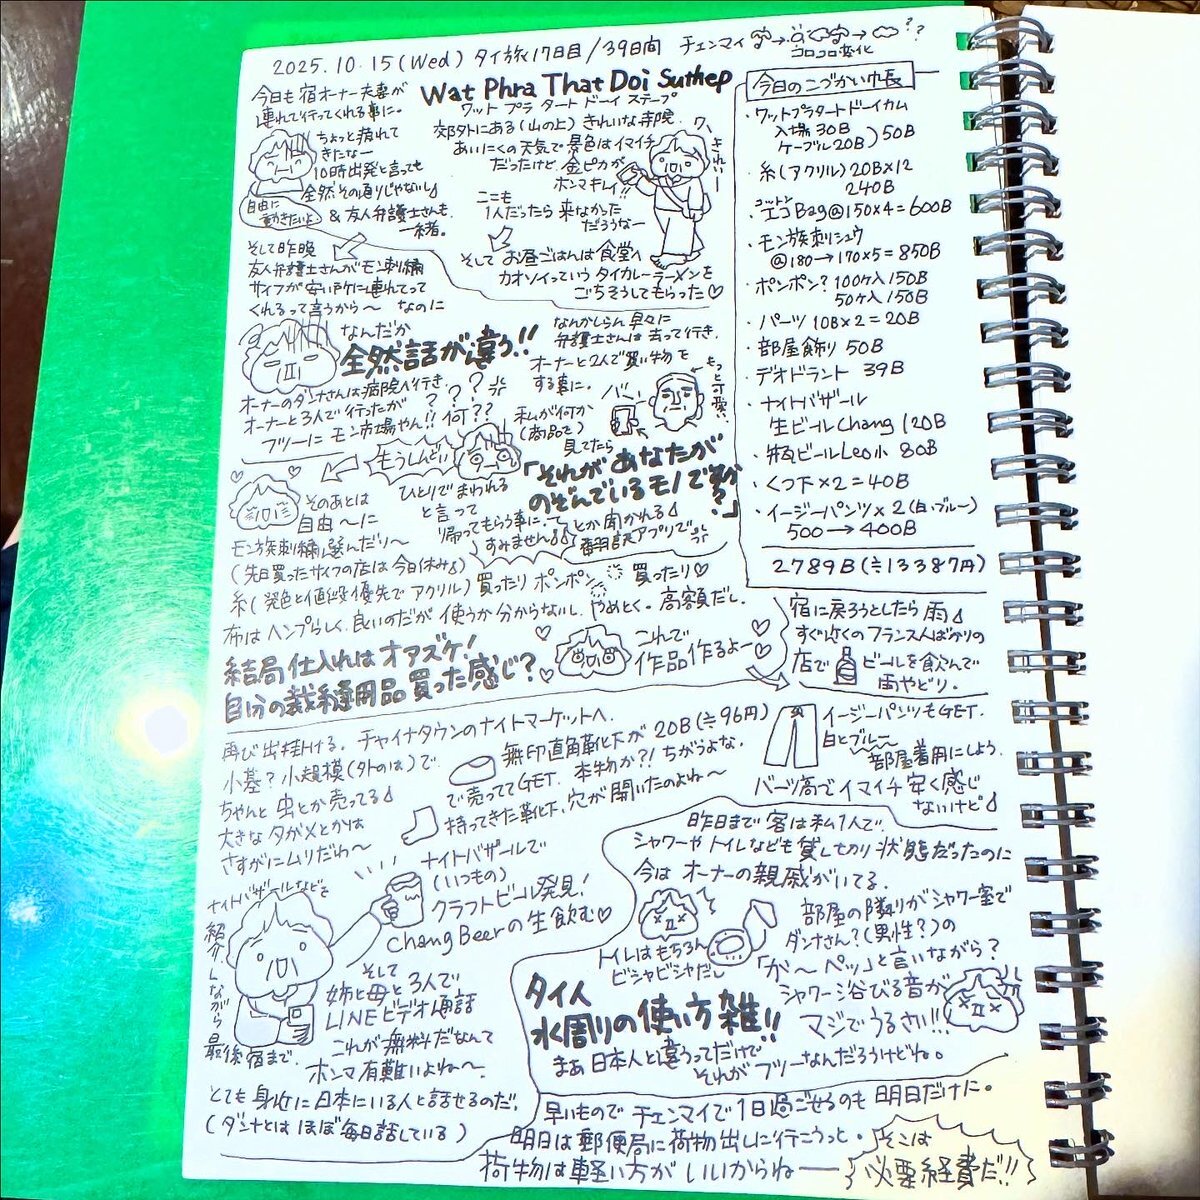 2025.10.15(Wed) タイ旅17日目/39日間 チェンマイ → → ??
コロコロ変化
Wat Phra That Doi Suthep
ワット プラ タート ドーイ ステープ
今日も宿オーナー夫妻が
連れて行ってくれる事に。
ちょっと疲れて
きたなー
10時出発と言っても
全然その通りじゃないし
自由に
動きたいよ
&友人弁護士さんも
一緒。
郊外にある(山の上)きれいな寺院
あいにくの天気で景色はイマイチ
だったけど 金ピカが
ホンマキレイ!!
ワ、きれいー
ここも
1人だったら来なかった
だろうなー
そして お昼ごはんは食堂へ
カオソイっていうタイカレーラーメンを
ごちそうしてもらった♡
そして昨晩
友人弁護士さんがモン刺繍
サイフが安い所に連れてって
くれるって言うから〜 なのに
なんだか
全然話が違う!!
オーナーのダンナさんは病院へ行き、
オーナーと3人で行ったが ???
フツーにモン市場やん!!何??
なんかしらん早々に
弁護士さんは去って行き、
オーナーと2人で買い物を
する事に。
もっと可愛い
バーン
私が何か
(商品を)
見てたら
「それがあなたが
のぞんでいるモノですか?」
とか聞かれる
翻訳アプリで
もうしんどい
ひとりでまわれる
と言って
帰ってもらう事に…
すみません
そのあとは
自由〜に
モン族刺繍選んだり〜
(先日買ったサイフの店は今日休み)
糸(発色と値段優先でアクリル)買ったり ポンポン 買ったり♡
布はヘンプらしく、良いのだが 使うか分からないし、やめとく。高額だし。
結局仕入れはオアズケ!
自分の裁縫用品買った感じ?
これで
作品作るよー
今日のこづかい帳
・ワットプラタートドーイカム
入場30B
ケーブル20B)50B
・糸(アクリル)20B×12
240B
・コットン
エコBag@150×4=600B
・モン族刺シュウ
@180→170×5=850B
・ポンポン?100ヶ入150B
50ヶ入150B
・パーツ 10B×2=20B
・部屋飾り 50B
・デオドラント 39B
・ナイトバザール
生ビールChang 120B
・瓶ビールLeo小 80B
・くつ下×2=40B
・イージーパンツ×2(白、ブルー)
500→400B
2789B(≒13387円)
宿に戻ろうとしたら雨
すぐ近くのフランス人ばかりの
店で ビールを飲んで
雨やどり。
再び出掛ける。チャイナタウンのナイトマーケットへ。
小規模(タトのは)で
ちゃんと虫とか売ってる
大きなタガメとかは
さすがにムリだわ〜
無印直角靴下が20B(≒96円)
で売っててGET. 本物か?!ちがうよな。
持ってきた靴下、穴が開いたのよね〜
イージーパンツもGET.
白とブルー
部屋着用にしよう。
バーツ高でイマイチ安く感じ
ないけど
ナイトバザールで
(いつもの)
クラフトビール発見!
ChangBeerの生飲む♡
ナイトバザールなどを
紹介しながら
最後宿まで。
そして
姉と母と3人で
LINEビデオ通話
これが無料だなんて
ホンマ有難いよね〜、
とても身近に日本にいる人と話せるのだ!
(ダンナとはほぼ毎日話している)
昨日まで客は私1人で、
シャワーやトイレなども貸し切り状態だったのに
今はオーナーの親戚がいてる。
トイレはもちろん
ビシャビシャだし
部屋の隣りがシャワー室で
ダンナさん?(男性?)の
「が〜ペッ」と言いながら?
シャワー浴びる音が
マジでうるさい!!
タイ人
水周りの使い方 雑!!
まあ日本人と違うってだけで
それがフツーなんだろうけどね。
早いものでチェンマイで1日過ごせるのも明日だけに。
明日は郵便局に荷物出しに行こうっと。
荷物は軽い方がいいからねー
そこは
必要経費だ!!